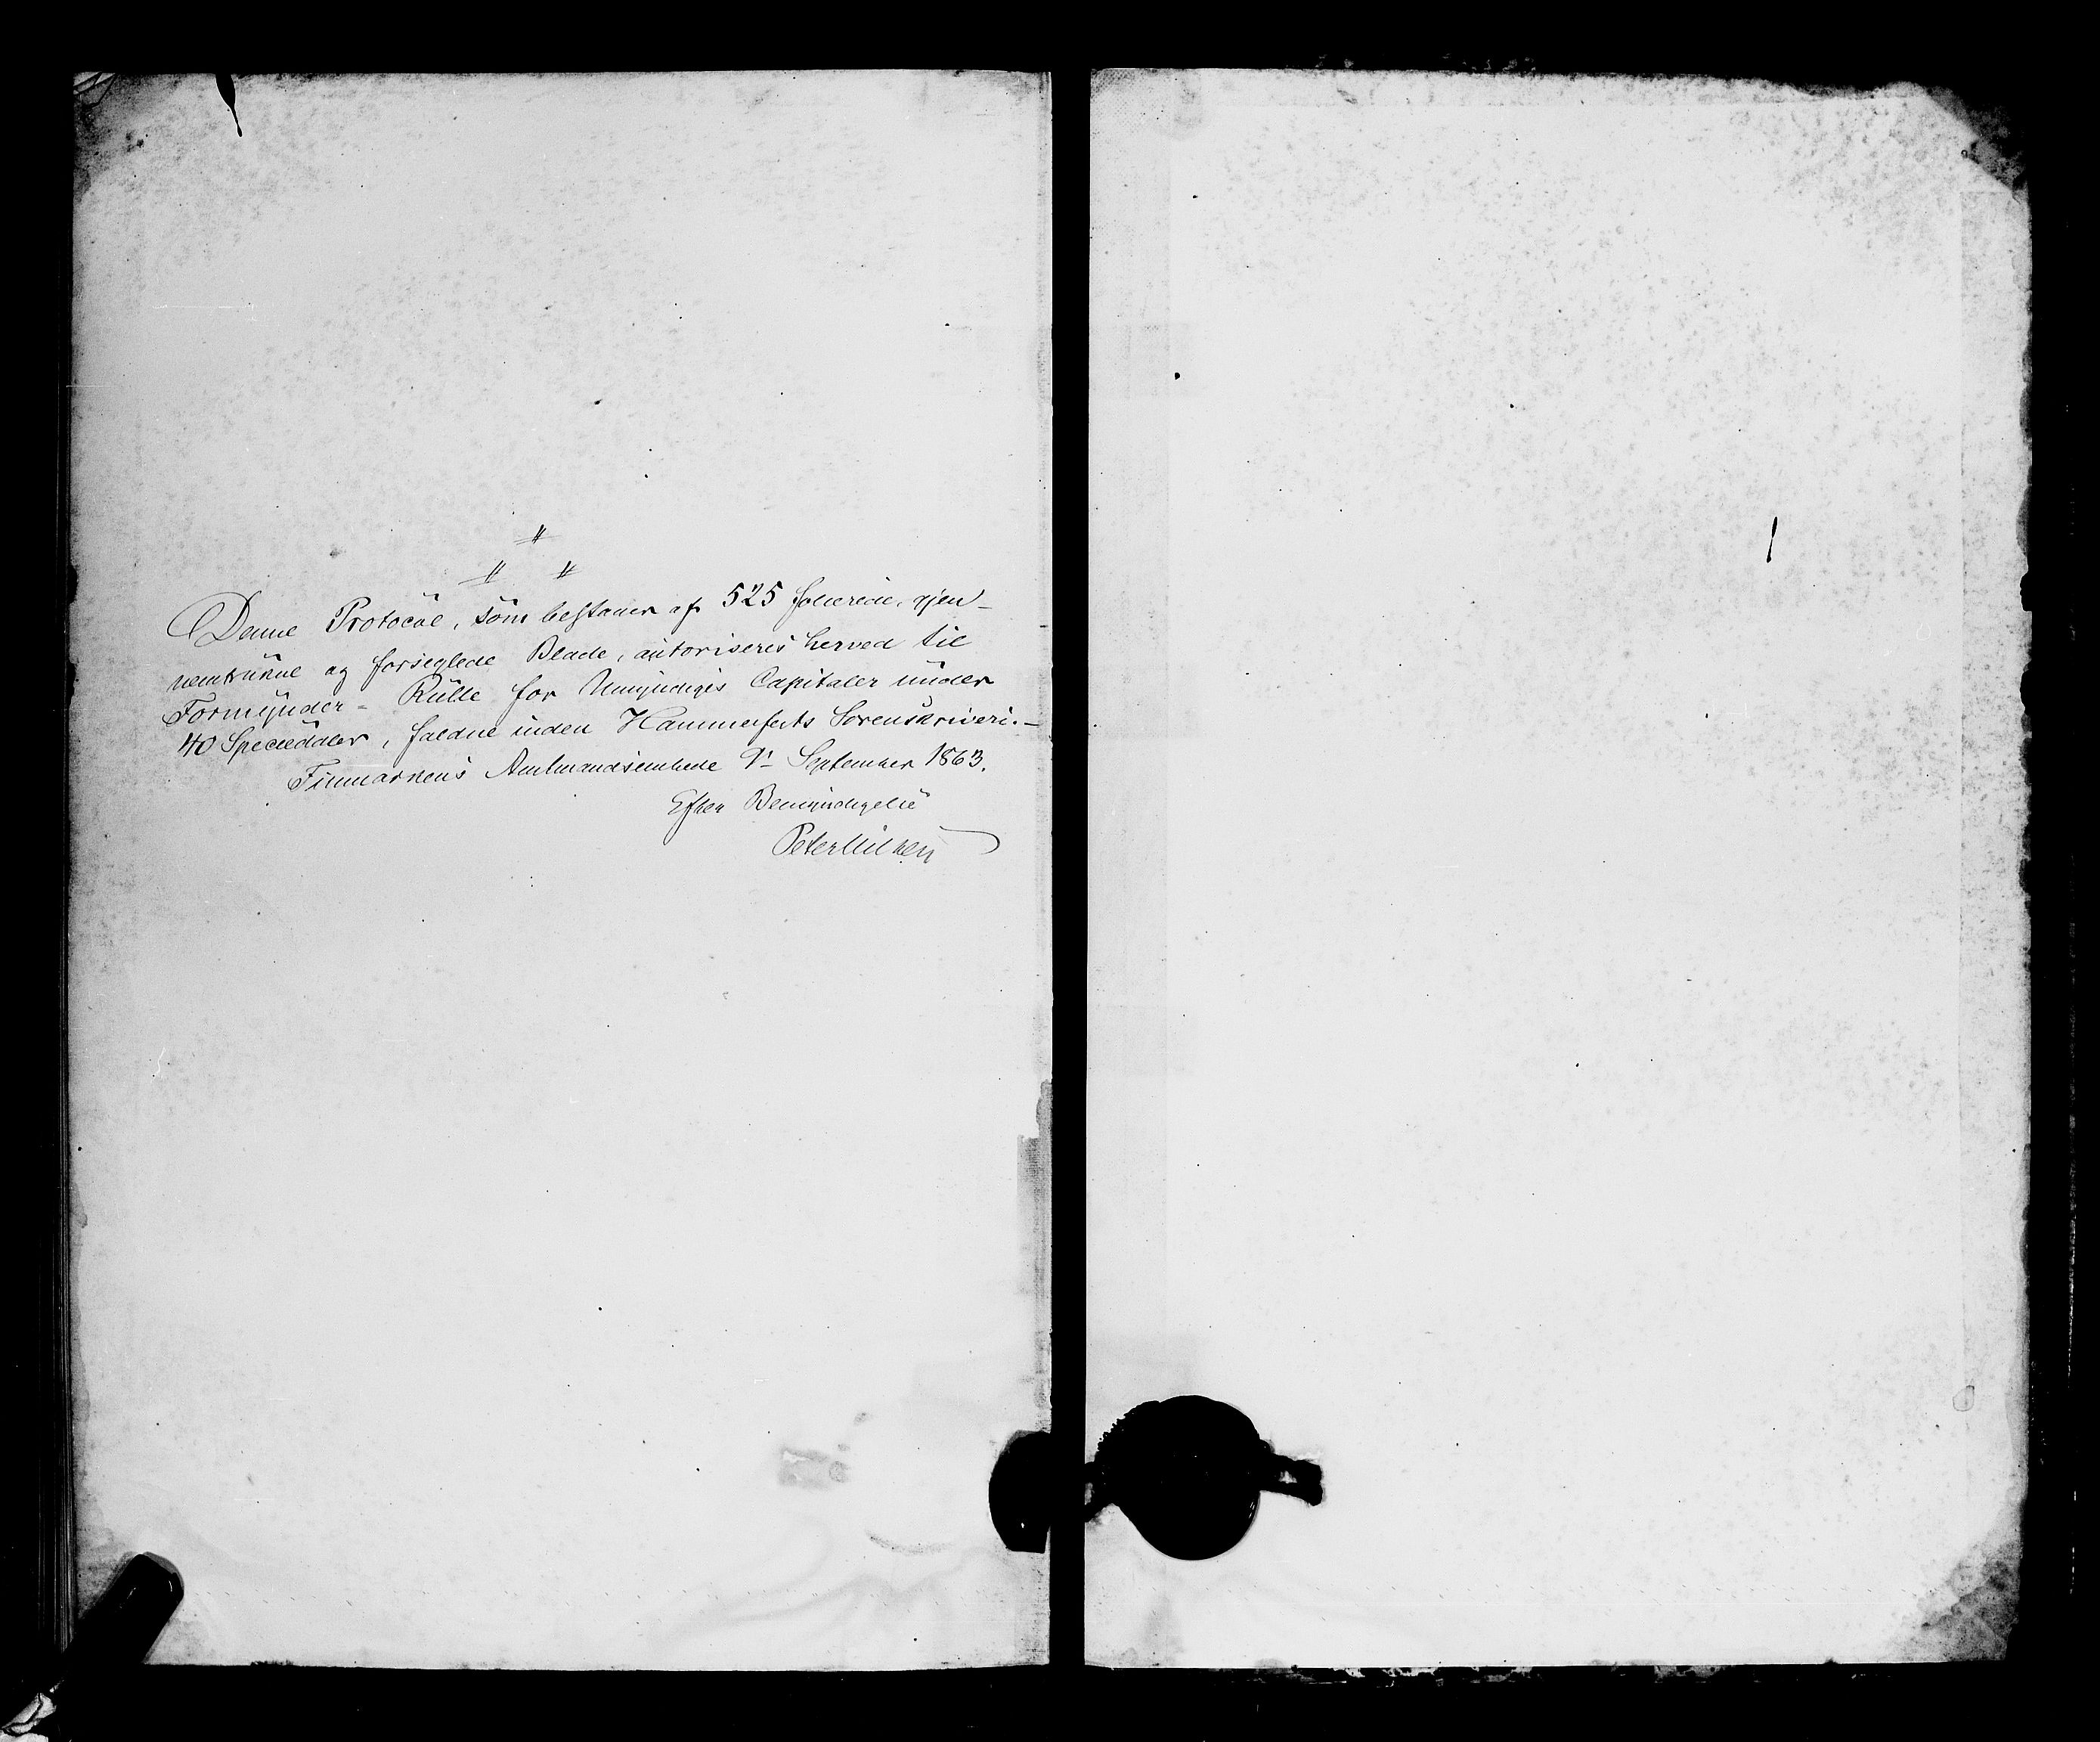 Denne Protocol, som bestaaer af 525 folierede, gjen-
nemtrukne og forseglede Blade, autoriseres herved til
Formynder-Rulle for Umyndiges Capitaler under
40 Speciedaler, faldne inden Hammerfests Sorenskriveri.-
Finmarkens Amtmandsembede 9 September 1863.
Efter Bemyndigelse
Peter